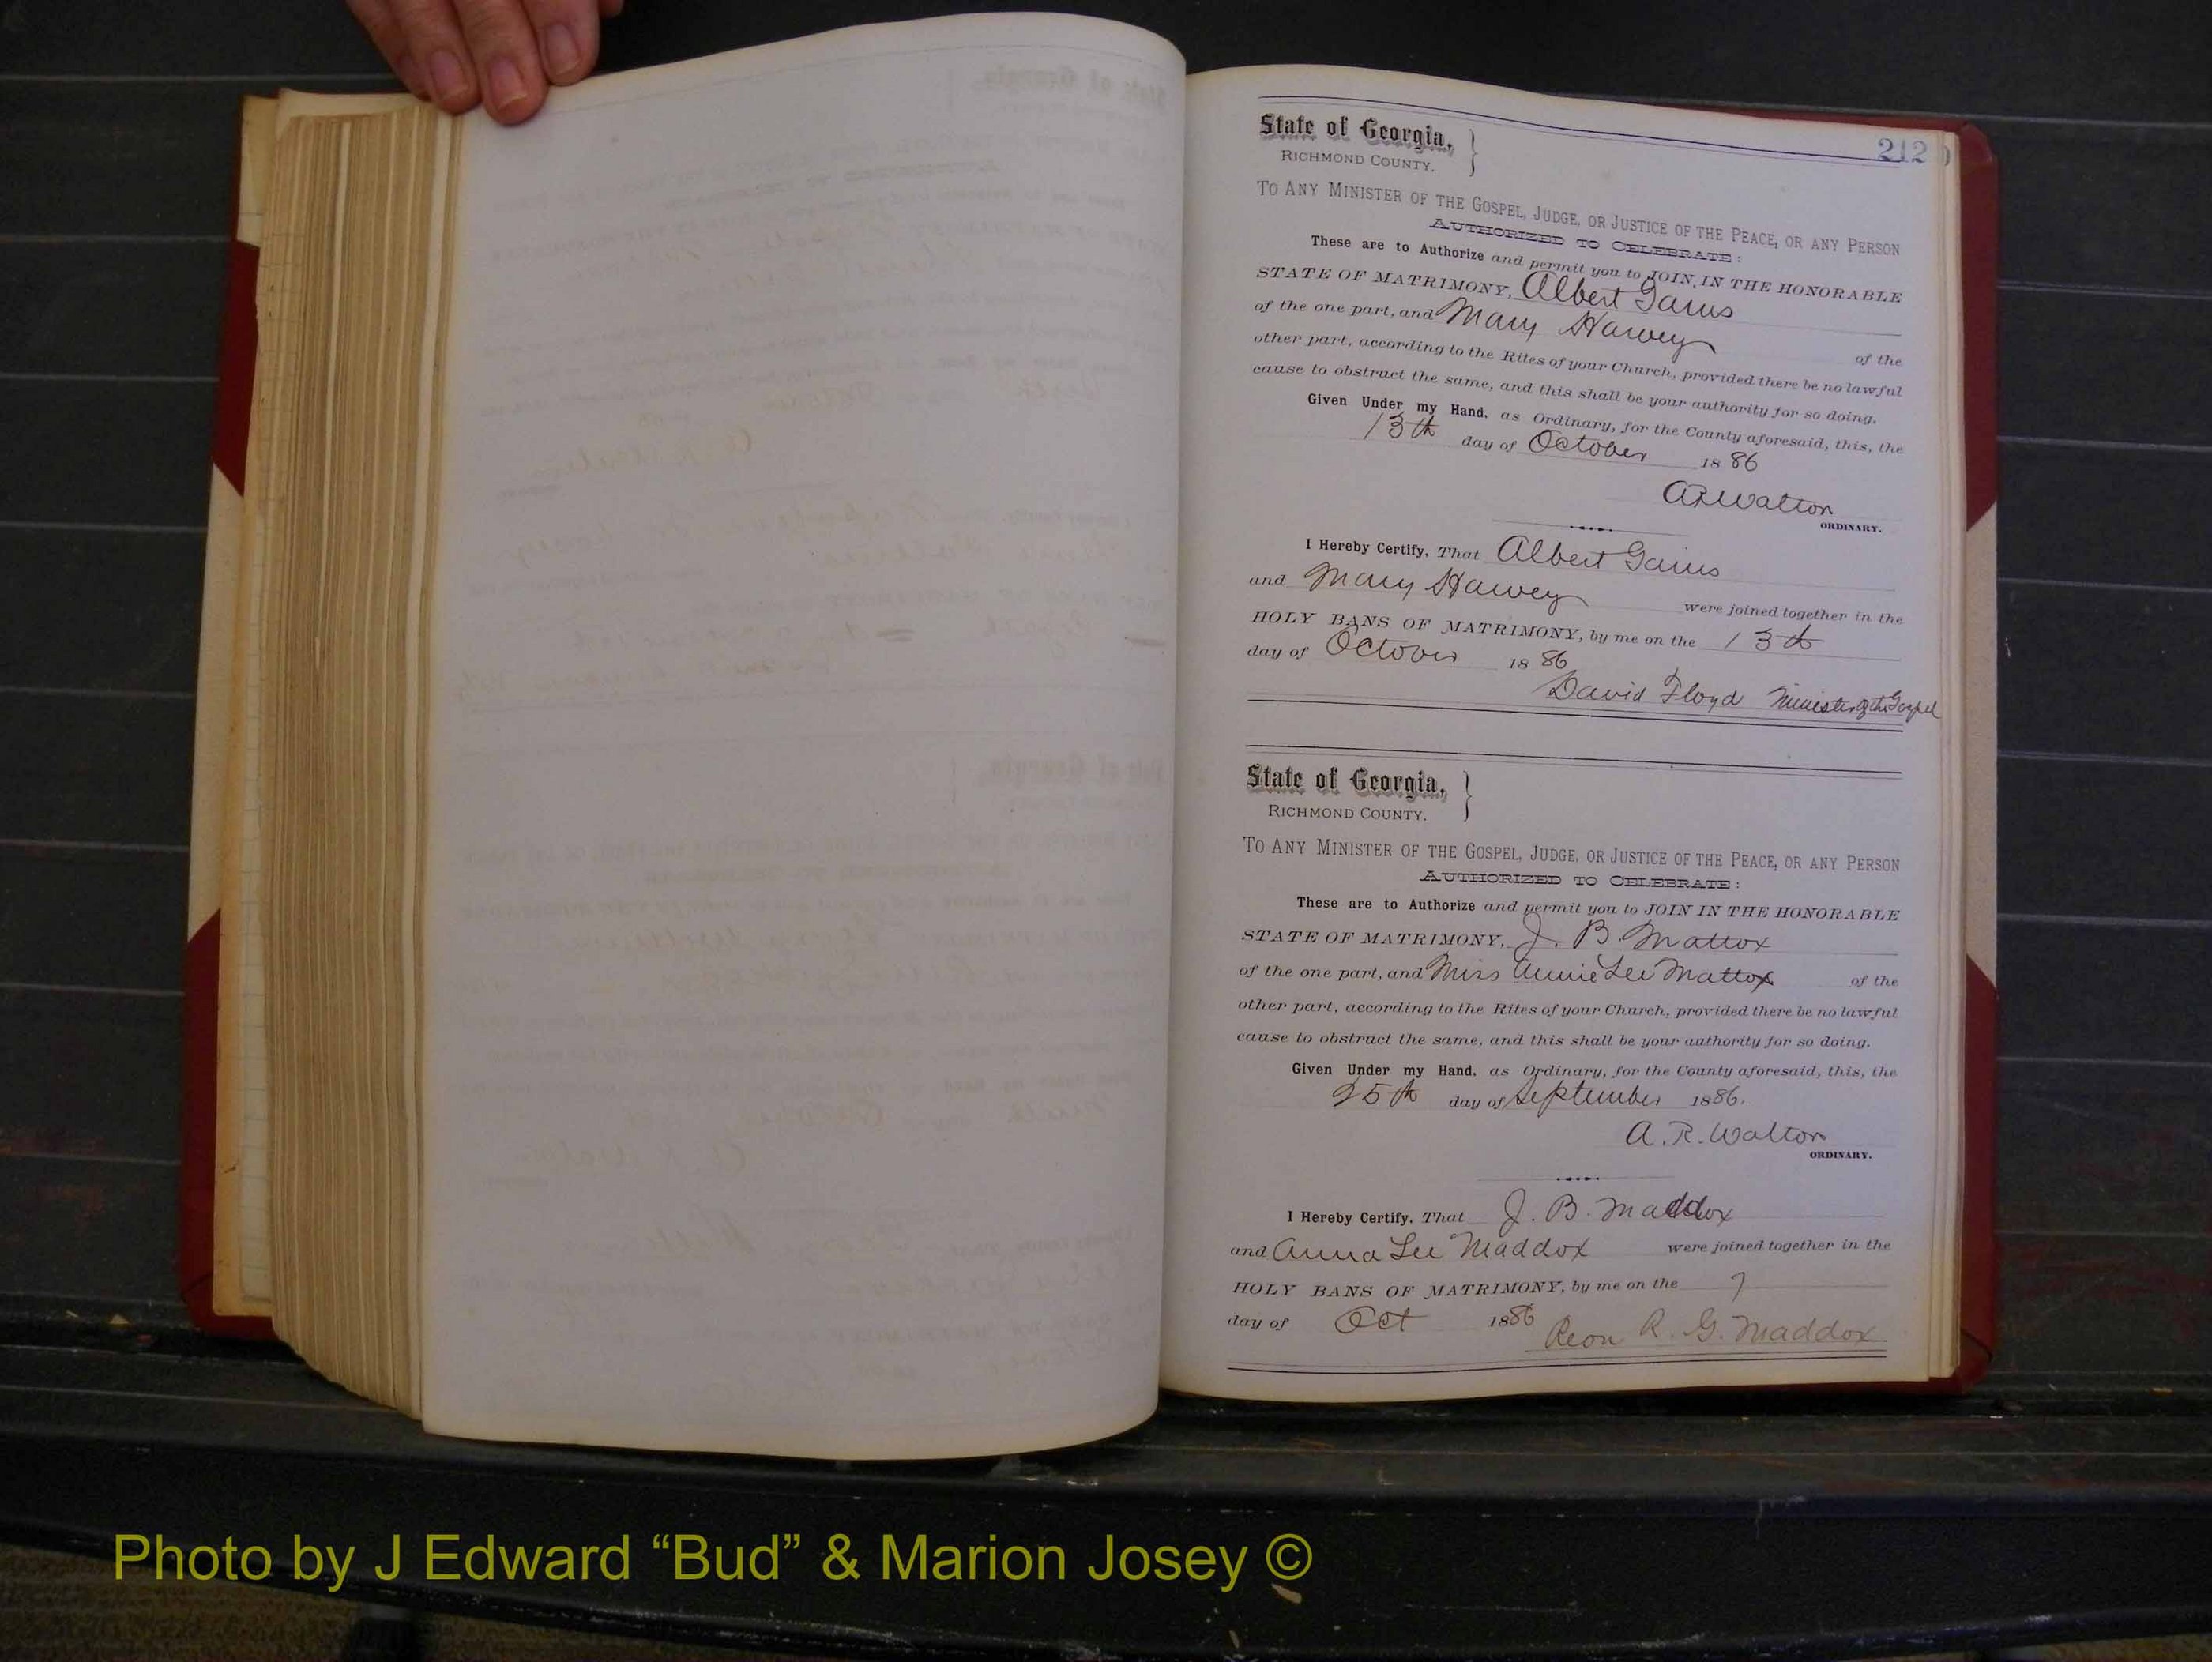 212
State of Georgia,
RICHMOND COUNTY.
TO ANY MINISTER OF THE GOSPEL, JUDGE, OR JUSTICE OF THE PEACE, OR ANY PERSON
AUTHORIZED TO CELEBRATE:
These are to Authorize and permit you to JOIN IN THE HONORABLE
STATE OF MATRIMONY, Albert Gaius
of the one part, and Mary Harvey of the
other part, according to the Rites of your Church, provided there be no lawful
cause to obstruct the same, and this shall be your authority for so doing.
Given Under my Hand, as Ordinary, for the County aforesaid, this, the
13th day of October 1886
A R Walton
ORDINARY.
I Hereby Certify, That Albert Gaius
and Mary Harvey were joined together in the
HOLY BANS OF MATRIMONY, by me on the 13th
day of October 1886
David Floyd Minister of the Gospel
State of Georgia,
RICHMOND COUNTY.
TO ANY MINISTER OF THE GOSPEL, JUDGE, OR JUSTICE OF THE PEACE, OR ANY PERSON
AUTHORIZED TO CELEBRATE:
These are to Authorize and permit you to JOIN IN THE HONORABLE
STATE OF MATRIMONY, J. B. Mattox
of the one part, and Miss Annie Lee Mattox of the
other part, according to the Rites of your Church, provided there be no lawful
cause to obstruct the same, and this shall be your authority for so doing.
Given Under my Hand, as Ordinary, for the County aforesaid, this, the
25th day of September 1886.
A. R. Walton
ORDINARY.
I Hereby Certify, That J. B. Maddox
and Anna Lee Maddox were joined together in the
HOLY BANS OF MATRIMONY, by me on the 7
day of Oct 1886
R. G. Maddox
Photo by J Edward “Bud” & Marion Josey ©